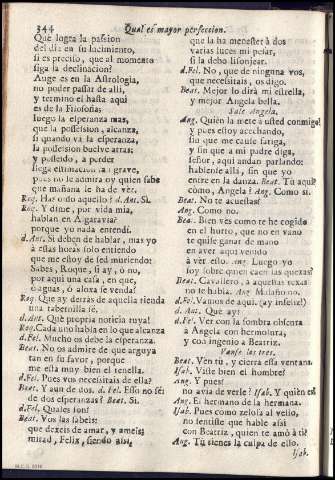 344
Qual es mayor perfeccion.
Que logra la passion
del dia en su lucimiento,
si es preciso, que al momento
siga la declinacion?
Auge es en la Astrologia,
no poder passar de alli,
y termino el hasta aqui
es de la Filosofia;
luego la esperanza mas,
que la possession, alcanza,
si quando và la esperanza,
la possession buelve atras;
y possèido, à perder
llega estimacion tan grave,
pues no se admira oy quien sabe
que mañana se ha de vèr.
Roq. Has oido aquello? d. Ant. Si.
Roq. Y dime, por vida mia,
hablan en Algaravia?
porque yo nada entendi.
d. Ant. Si deben de hablar, mas yo
à estas horas solo entiendo
que me estoy de sed muriendo:
Sabes, Roque, si ay, ò no,
por aqui una casa, en que,
ò aguas, ò aloxa se venda?
Roq. Que ay detràs de aquella tienda
una tabernilla sè.
d. Ant. Què propria noticia tuya!
Roq. Cada uno habla en lo que alcanza
d. Fel. Mucho os debe la esperanza.
Beat. No os admire de que arguya
tan en su favor, porque
me està muy bien el tenella.
d. Fel. Pues vos necessitais de ella?
Beat. Y aun de dos. d. Fel. Esso no sè:
de dos esperanzas? Beat. Si.
d. Fel. Quales son?
Beat. Vos las sabeis:
que dexeis de amar, y ameis;
mirad, Felix, siendo assi,
que la ha menester à dos
varias luces mi pesar,
si la debo lisonjear.
d. Fel. No, que de ninguna vos,
que necessitais, os digo.
Beat. Mejor lo dirà mi estrella,
y mejor Angela bella.
Sale Angela.
Ang. Quièn la mete à usted conmigo?
y pues estoy acechando,
sin que me cause fatiga,
y sin que a mi padre diga,
señor, aqui andan parlando:
hablense allà, sin que yo
entre en la danza. Beat. Tù aqui?
còmo, Angela? Ang. Como si.
Beat. No te acuestas?
Ang. Como no.
Beat. Bien ves como te he cogido
en el hurto, que no en vano
te quise ganar de mano
en aver aqui venido
à vèr esto. Ang. Luego yo
soy sobre quien caen las quexas?
Beat. Cavallero, à aquestas rexas
no se habla. Ang. Malasño no.
d. Fel. Vamos de aqui. (ay infeliz!)
d. Ant. Què ay?
d. Fel. Vèr con la sombra obscura
à Angela con hermosura,
y con ingenio à Beatriz.
Vanse los tres.
Beat. Ven tù, y cierra essa ventana.
Isab. Viste bien el hombre?
Ang. Y pues!
no avia de verle? Isab. Y quièn es?
Ang. El hermano de la hermana.
Isab. Pues como zelosa al vello,
no sentiste que hable assi
con Beatriz, quien te amò à ti?
Ang. Tù tienes la culpa de ello.
Isab.